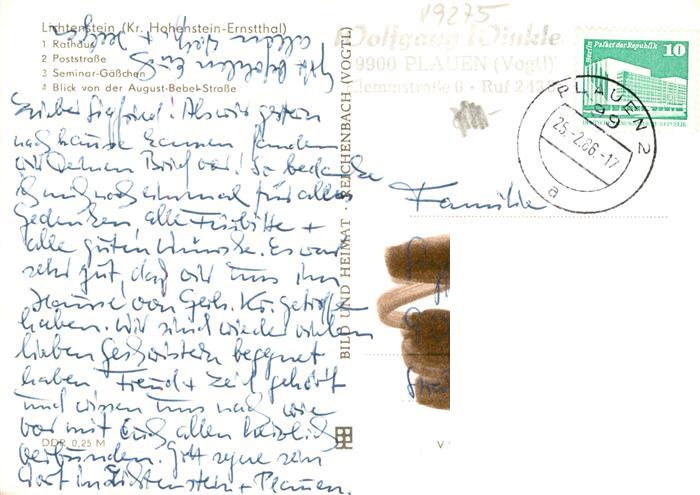 19275
Lichtenstein (Kr. Hohenstein-Ernstthal)
1 Rathaus
2 Poststraße
3 Seminar-Gäßchen
4 Blick von der August-Bebel-Straße
Wolfgang Winkle
9900 PLAUEN (Vogtl)
Klemmstraße 6 · Ruf 243
Berlin Palast der Republik
10
PLAUEN 2
99
25.-2.86.-17
a
Lieber Siegfried! Als wir gestern
nach hause kamen fanden
wir Deinen Brief vor! So bedanke
ich mich noch einmal für alles
Gedenken, alle Fürbitte +
alle guten Wünsche. Es war
sehr gut, daß wir uns im
Hause von Gerh. Kr. getroffen
haben. Wir sind wieder vielen
lieben Geschwistern begegnet
haben Freud + Zeit gehört
und wissen uns nach wie
vor mit Euch allen herzlich
verbunden. Gott segne sein
Wort in Lichtenstein + Plauen.
Familie
BILD UND HEIMAT · REICHENBACH (VOGTL)
DDR 0,25 M
V